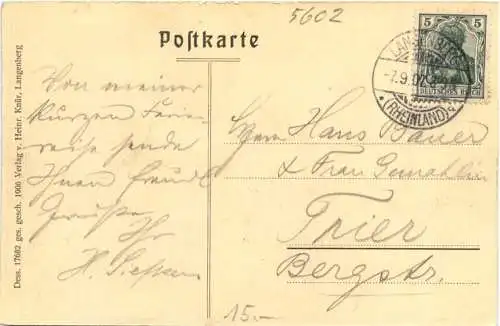 5602
Postkarte
5 5
DEUTSCHES REICH
LANGENBERG
-7.9.07
(RHEINLAND)
Dess. 17682 ges. gesch. 1906 Verlag v. Heinr. Knür, Langenberg
Von meiner
kurzen Ferien
reise sende
Ihnen freundl.
Grüße
Ihr
H.
Herrn Hans Bauer
& Frau Gemahlin
Trier
Bergstr.
15.-